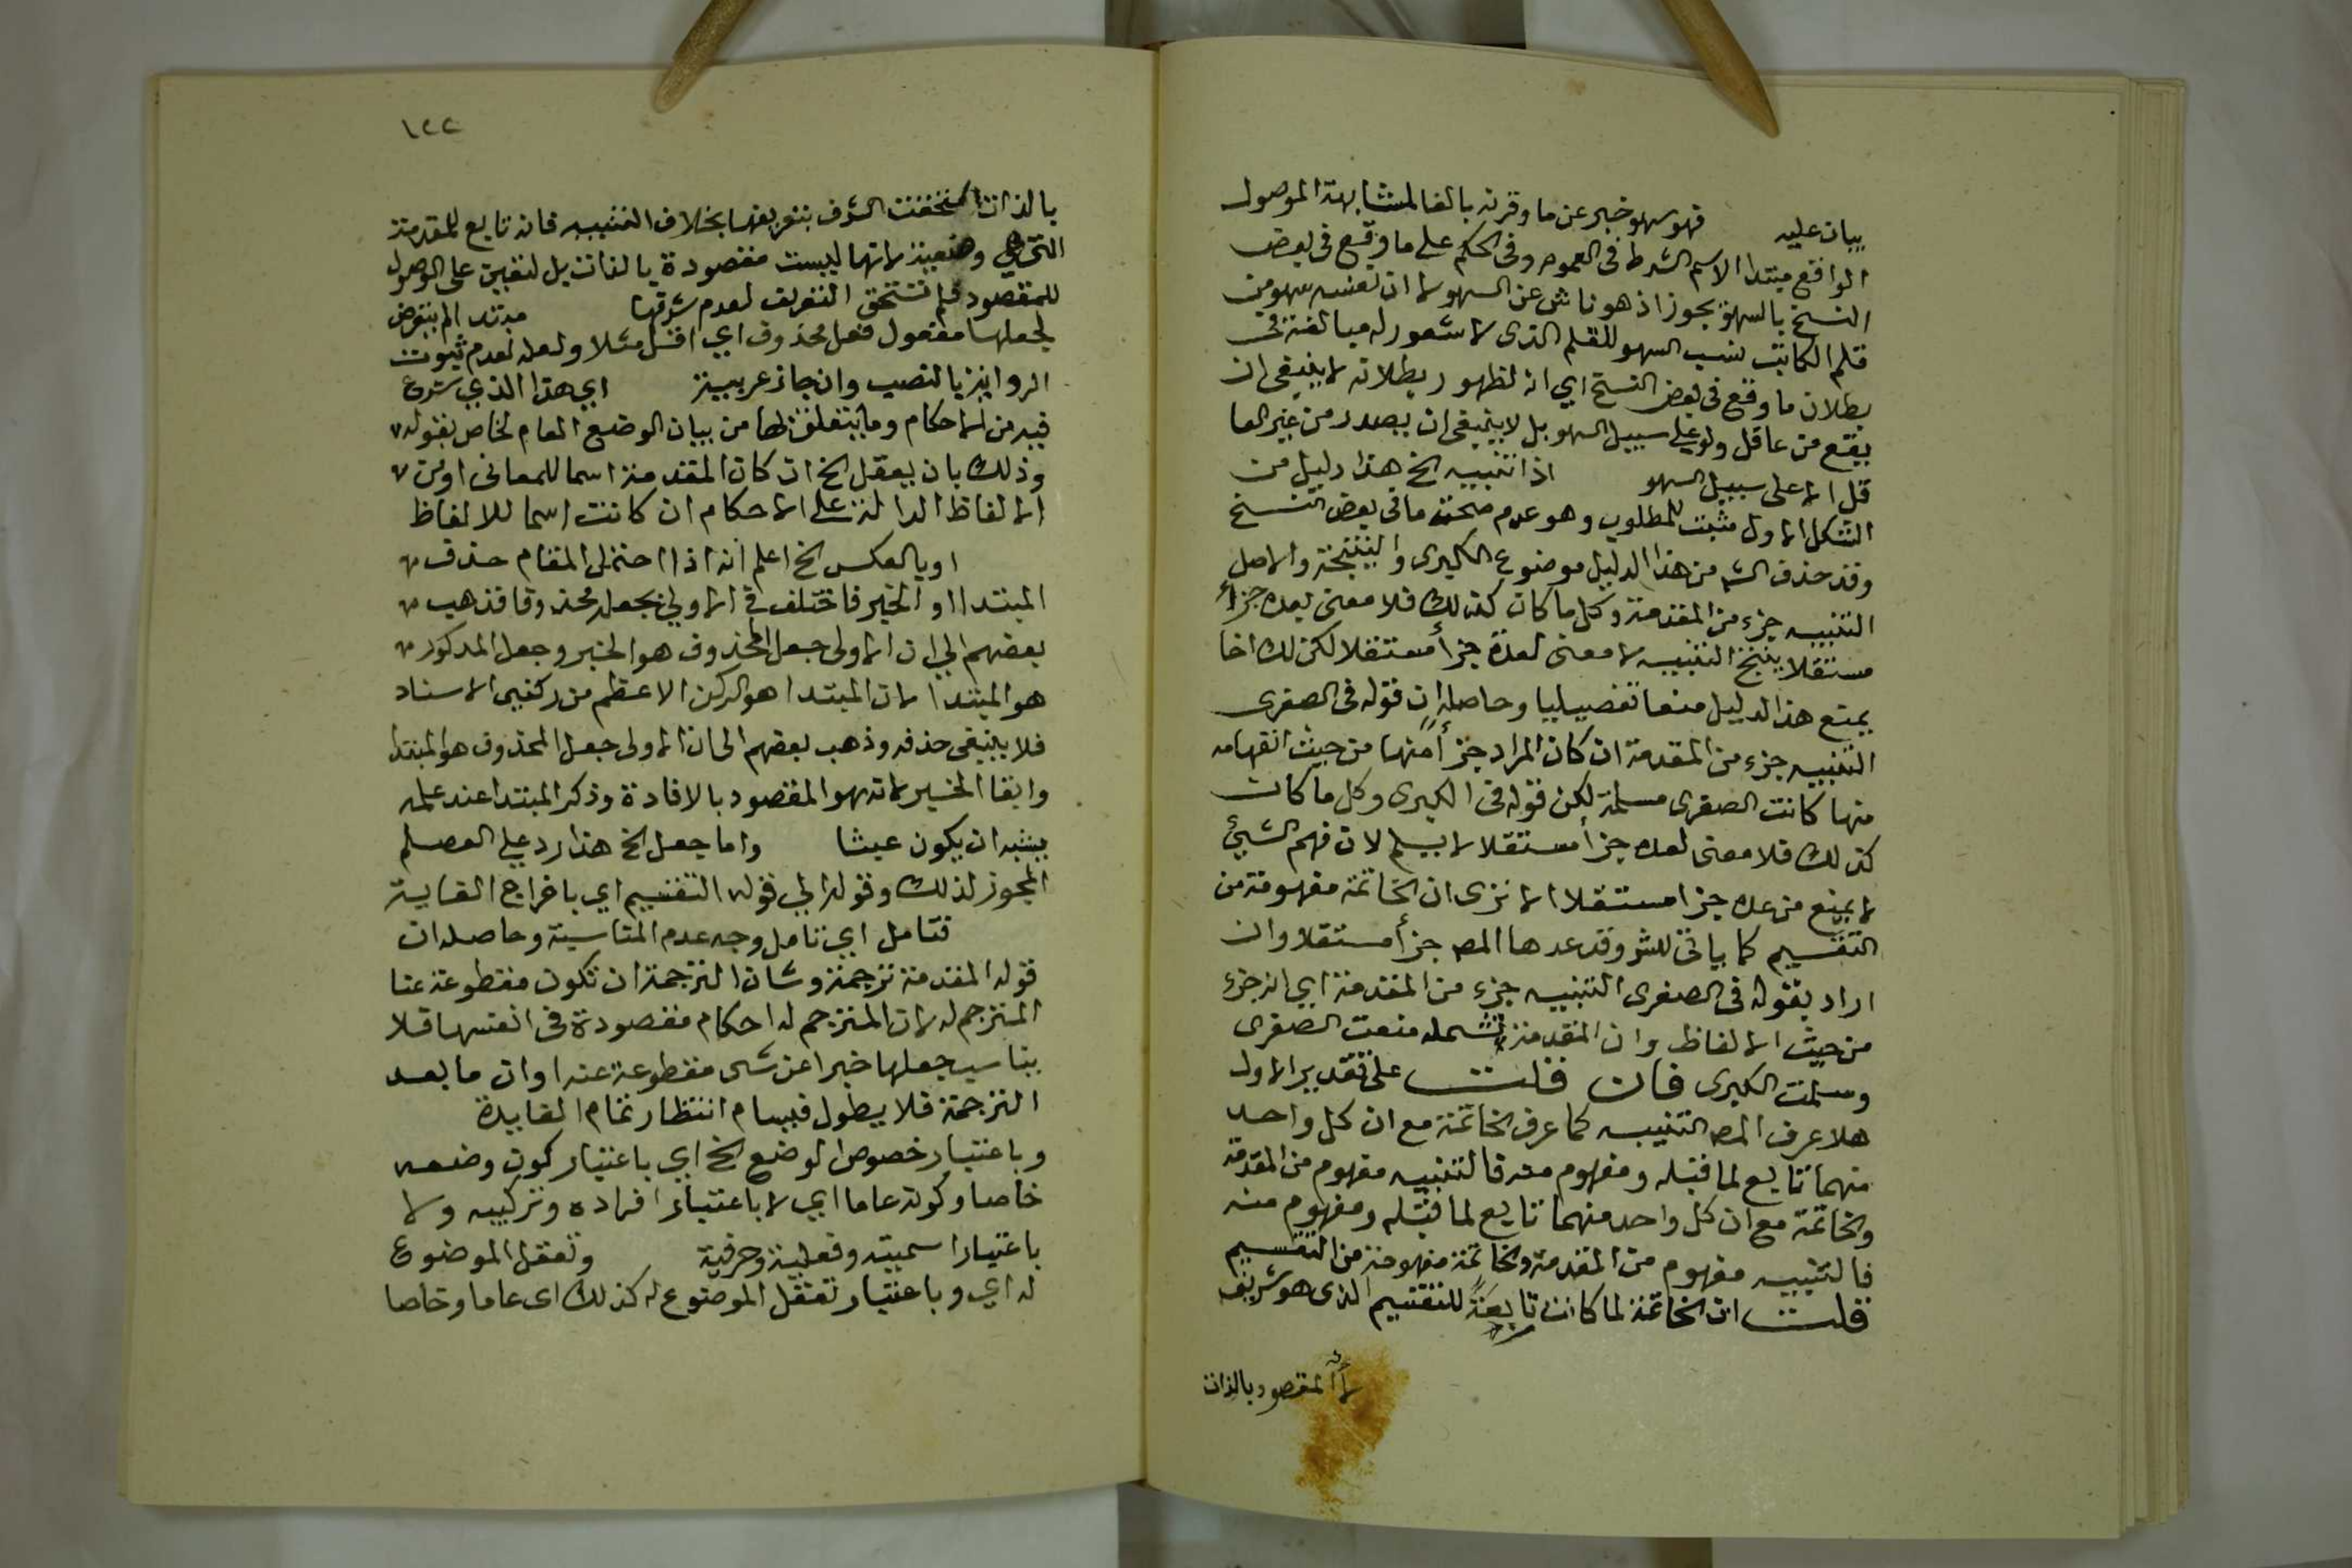 ببان عليه فهو سهو خبر عن ما وقرنه بالفا لمشابهة الموصول
الواقع مبتدا الاسم الشرط فى العموم وفى الحكم على ما وقع فى بعض
النسخ بالسهو تجوز اذ هو ناش عن السهو لا ان نفسه سهو من
قلم الكاتب نسب السهو للقلم الذى لا شعور له مبالغة فى
بطلان ما وقع فى بعض النسخ اي انه لظهور بطلانه لا ينبغى ان
يقع من عاقل ولو على سبيل السهو بل لا ينبغى ان يصدر من غير العا
قل الا على سبيل السهو اذا التنبيه الخ هذا دليل من
الشكل الاول مثبت للمطلوب وهو عدم صحة ما فى بعض النسخ
وقد حذف الش من هذا الدليل موضوع الكبرى والنتيجة والاصل
التنبيه جزء من المقدمة وكل ما كان كذلك فلا معنى لعده جزأ
مستقلا ينتج التنبيه لا معنى لعده جزأ مستقلا لكن لك اخا
يمنع هذا الدليل منعا تفصيليا وحاصله ان قوله فى الصغرى
التنبيه جزء من المقدمة ان كان المراد جزأ منها من حيث انفهامه
منها كانت الصغرى مسلمة لكن قوله فى الكبرى وكل ما كان
كذلك فلا معنى لعده جزأ مستقلا لا يسلم لان فهم الشيئ
لا يمنع من عده جزا مستقلا الا ترى ان الخاتمة مفهومة من
التقسيم كما ياتى للش وقد عدها المص جزأ مستقلا وان
اراد بقوله فى الصغرى التنبيه جزء من المقدمة اي انه جزء
من حيث الالفاظ وان المقدمة تشمله منعت الصغرى
وسلمت الكبرى فان قلت على تقدير الاول
هلا عرف المص التنبيه كما عرف الخاتمة مع ان كل واحد
منهما تابع لما قبله ومفهوم منه فالتنبيه مفهوم من المقدمة
والخاتمة مع ان كل واحد منهما تابع لما قبله ومفهوم منه
فالتنبيه مفهوم من المقدمة والخاتمة مفهومة من التقسيم
قلت ان الخاتمة لما كانت تابعة للتقسيم الذى هو شريف
لأنه المقصود بالذات
١٢٢
بالذات استحقت الشرف بتعريفها بخلاف التنبيه فانه تابع للمقدمة
التى هي وضعية لانها ليست مقصودة بالذات بل لتعين على الوصول
للمقصود فلم تستحق التعريف لعدم شرفها مبتدا لم يتعرض
لجعلها مفعول فعل محذوف اي اقرا مثلا ولعله لعدم ثبوت
الرواية بالنصب وان جاز عربية اي هذا الذي شرع
فيه من الاحكام وما يتعلق بها من بيان الوضع العام لخاص بقوله
وذلك بان يعقل الخ ان كان المقدمة اسما للمعانى او من
الالفاظ الدالة على الاحكام ان كانت اسما للالفاظ
او بالعكس الخ اعلم انه اذا احتمل المقام حذف
المبتدا او الخبر فاختلف فى الاولى بجعله محذوفا فذهب
بعضهم الى ان الاولى جعل المحذوف هو الخبر وجعل المذكور
هو المبتدا لان المبتدا هو الركن الاعظم من ركنى الاسناد
فلا ينبغى حذفه وذهب بعضهم الى ان الاولى جعل المحذوف هو المبتدا
وابقا الخبر لانه هو المقصود بالافادة وذكر المبتدا عند علمه
يشبه ان يكون عبثا واما جعل الخ هذا رد على العصام
المجوز لذلك وقوله الى قوله التقسيم اي باخراج الغاية
فتامل اي تامل وجه عدم المناسبة وحاصله ان
قوله المقدمة ترجمة وشان الترجمة ان تكون مقطوعة عنا
المترجم له لان المترجم له احكام مقصودة فى انفسها فلا
يناسب جعلها خبرا عن شى مقطوعة عنه اوان ما بعد
الترجمة فلا يطول فيسام انتظار تمام الفايدة
وباعتبار خصوص الوضع الخ اي باعتبار كون وضعه
خاصا وكونه عاما اي لا باعتبار افراده وتركيبه ولا
باعتبار اسميته وفعلية وحرفية وتعقل الموضوع
له اي وباعتبار تعقل الموضوع له كذلك اى عاما وخاصا